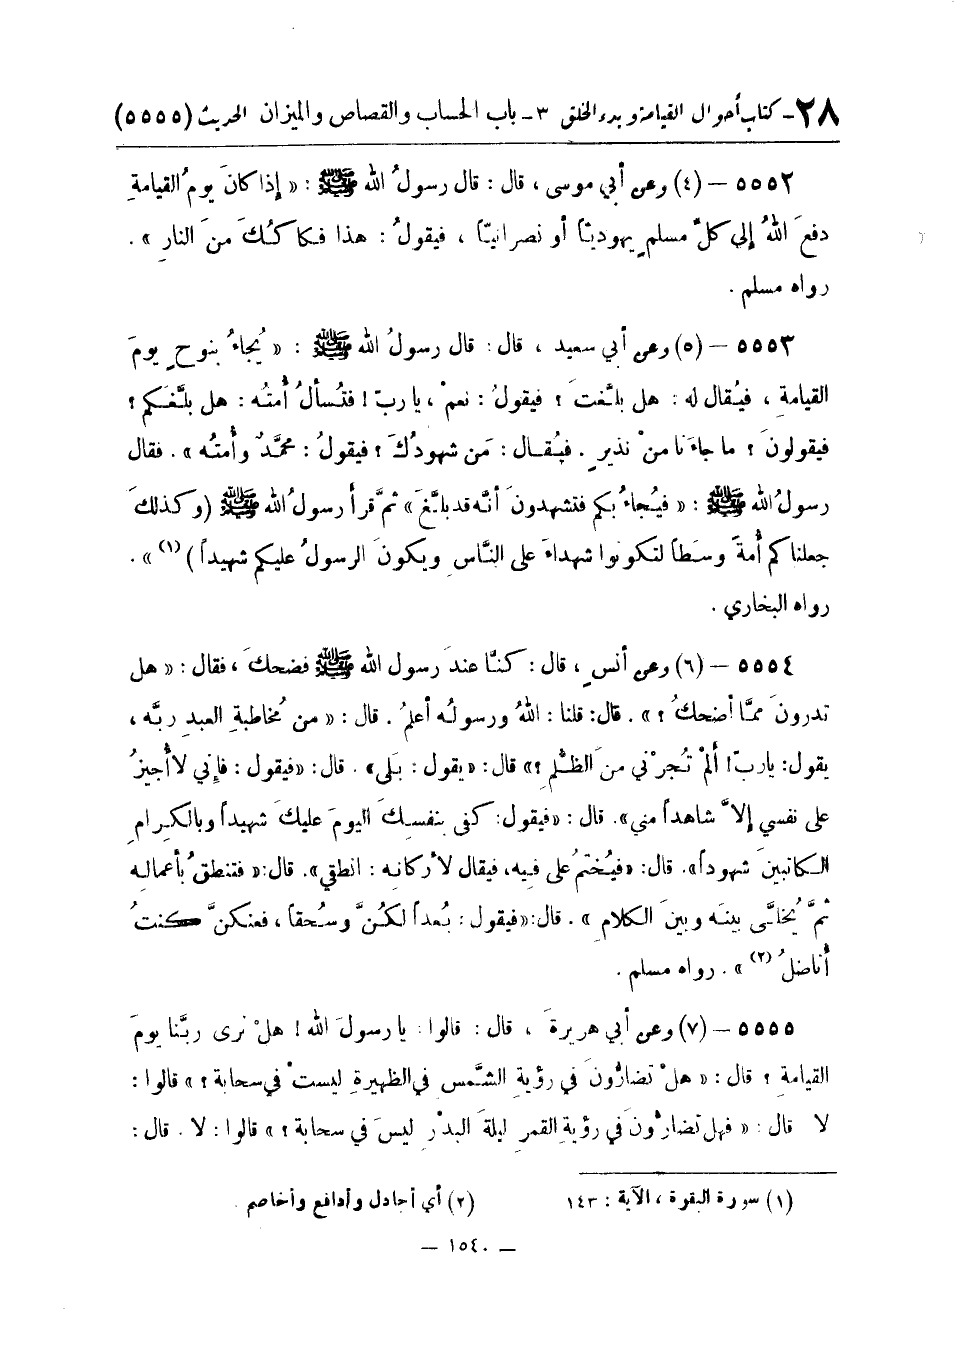 ٢٨- كتاب أحوال القيامة وبدء الخلق ٣- باب الحساب والقصاص والميزان الحديث (٥٥٥٥)
٥٥٥٢ – (٤) وعن أبي موسى ، قال : قال رسولُ الله ﷺ : « إِذا كانَ يومُ القيامةِ
دفعَ اللهُ إِلى كلِّ مسلمٍ يهوديّاً أو نصرانيّاً ، فيقولُ : هذا فكاكُكَ منَ النارِ » .
رواه مسلم .
٥٥٥٣ – (٥) وعن أبي سعيد ، قال : قال رسولُ الله ﷺ : « يُجاءُ بنوحٍ يومَ
القيامةِ ، فيُقال له : هل بلَّغتَ ؟ فيقولُ : نعمْ ، يا ربّ ! فتُسألُ أُمتُه : هل بلَّغكم ؟
فيقولونَ ؟ ما جاءَنا منْ نذيرٍ . فيُقال : مَن شهودُكَ ؟ فيقولُ : محمَّدٌ وأُمتُه » . فقال
رسولُ الله ﷺ : « فيُجاءُ بكم فتشهدونَ أنَّه قد بلَّغَ » ثمَّ قرأ رسولُ الله ﷺ (وكذلكَ
جعلناكم أُمةً وسَطاً لتكونوا شهداءَ على النَّاسِ ويكونَ الرسولُ عليكم شهيداً ) (١) » .
رواه البخاري .
٥٥٥٤ – (٦) وعن أنسٍ ، قال : كنَّا عندَ رسول الله ﷺ فضحكَ ، فقال : « هل
تدرونَ ممَّا أضحكُ ؟ » . قال: قلنا : اللهُ ورسولُه أعلمُ . قال : « من مُخاطبةِ العبدِ ربَّه ،
يقول: يا ربّ! ألمْ تُجرْني منَ الظُّلمِ ؟» قال: «يقول : بَلى» . قال: «فيقول : فإِني لا أُجيزُ
على نفسي إِلاَّ شاهداً مني». قال : «فيقول: كفى بنفسِكَ اليومَ عليكَ شهيداً وبالكرامِ
الكاتبينَ شهوداً». قال: «فيُختمُ على فيه، فيقال لأركانِه : انطقي». قال:« فتنطقُ بأعمالِه
ثمَّ يُخلَّى بينَه وبينَ الكلامِ » . قال:«فيقول : بُعداً لكُنَّ وسُحقاً ، فعنكنَّ كنتُ
أُناضلُ (٢) » . رواه مسلم .
٥٥٥٥ – (٧) وعن أبي هريرةَ ، قال : قالوا : يا رسولَ الله ! هلْ نرى ربَّنا يومَ
القيامةِ ؟ قال : « هلْ تضارُّونَ في رؤيةِ الشَّمسِ في الظهيرةِ ليستْ في سحابة ؟ » قالوا :
لا قال : « فهل تضارُّونَ في رؤيةِ القمرِ ليلةَ البدْرِ ليسَ في سحابة ؟ » قالوا : لا . قال :
(١) سورة البقرة ، الآية : ١٤٣ (٢) أي أجادل وأدافع وأخاصم .
– ١٥٤٠ –